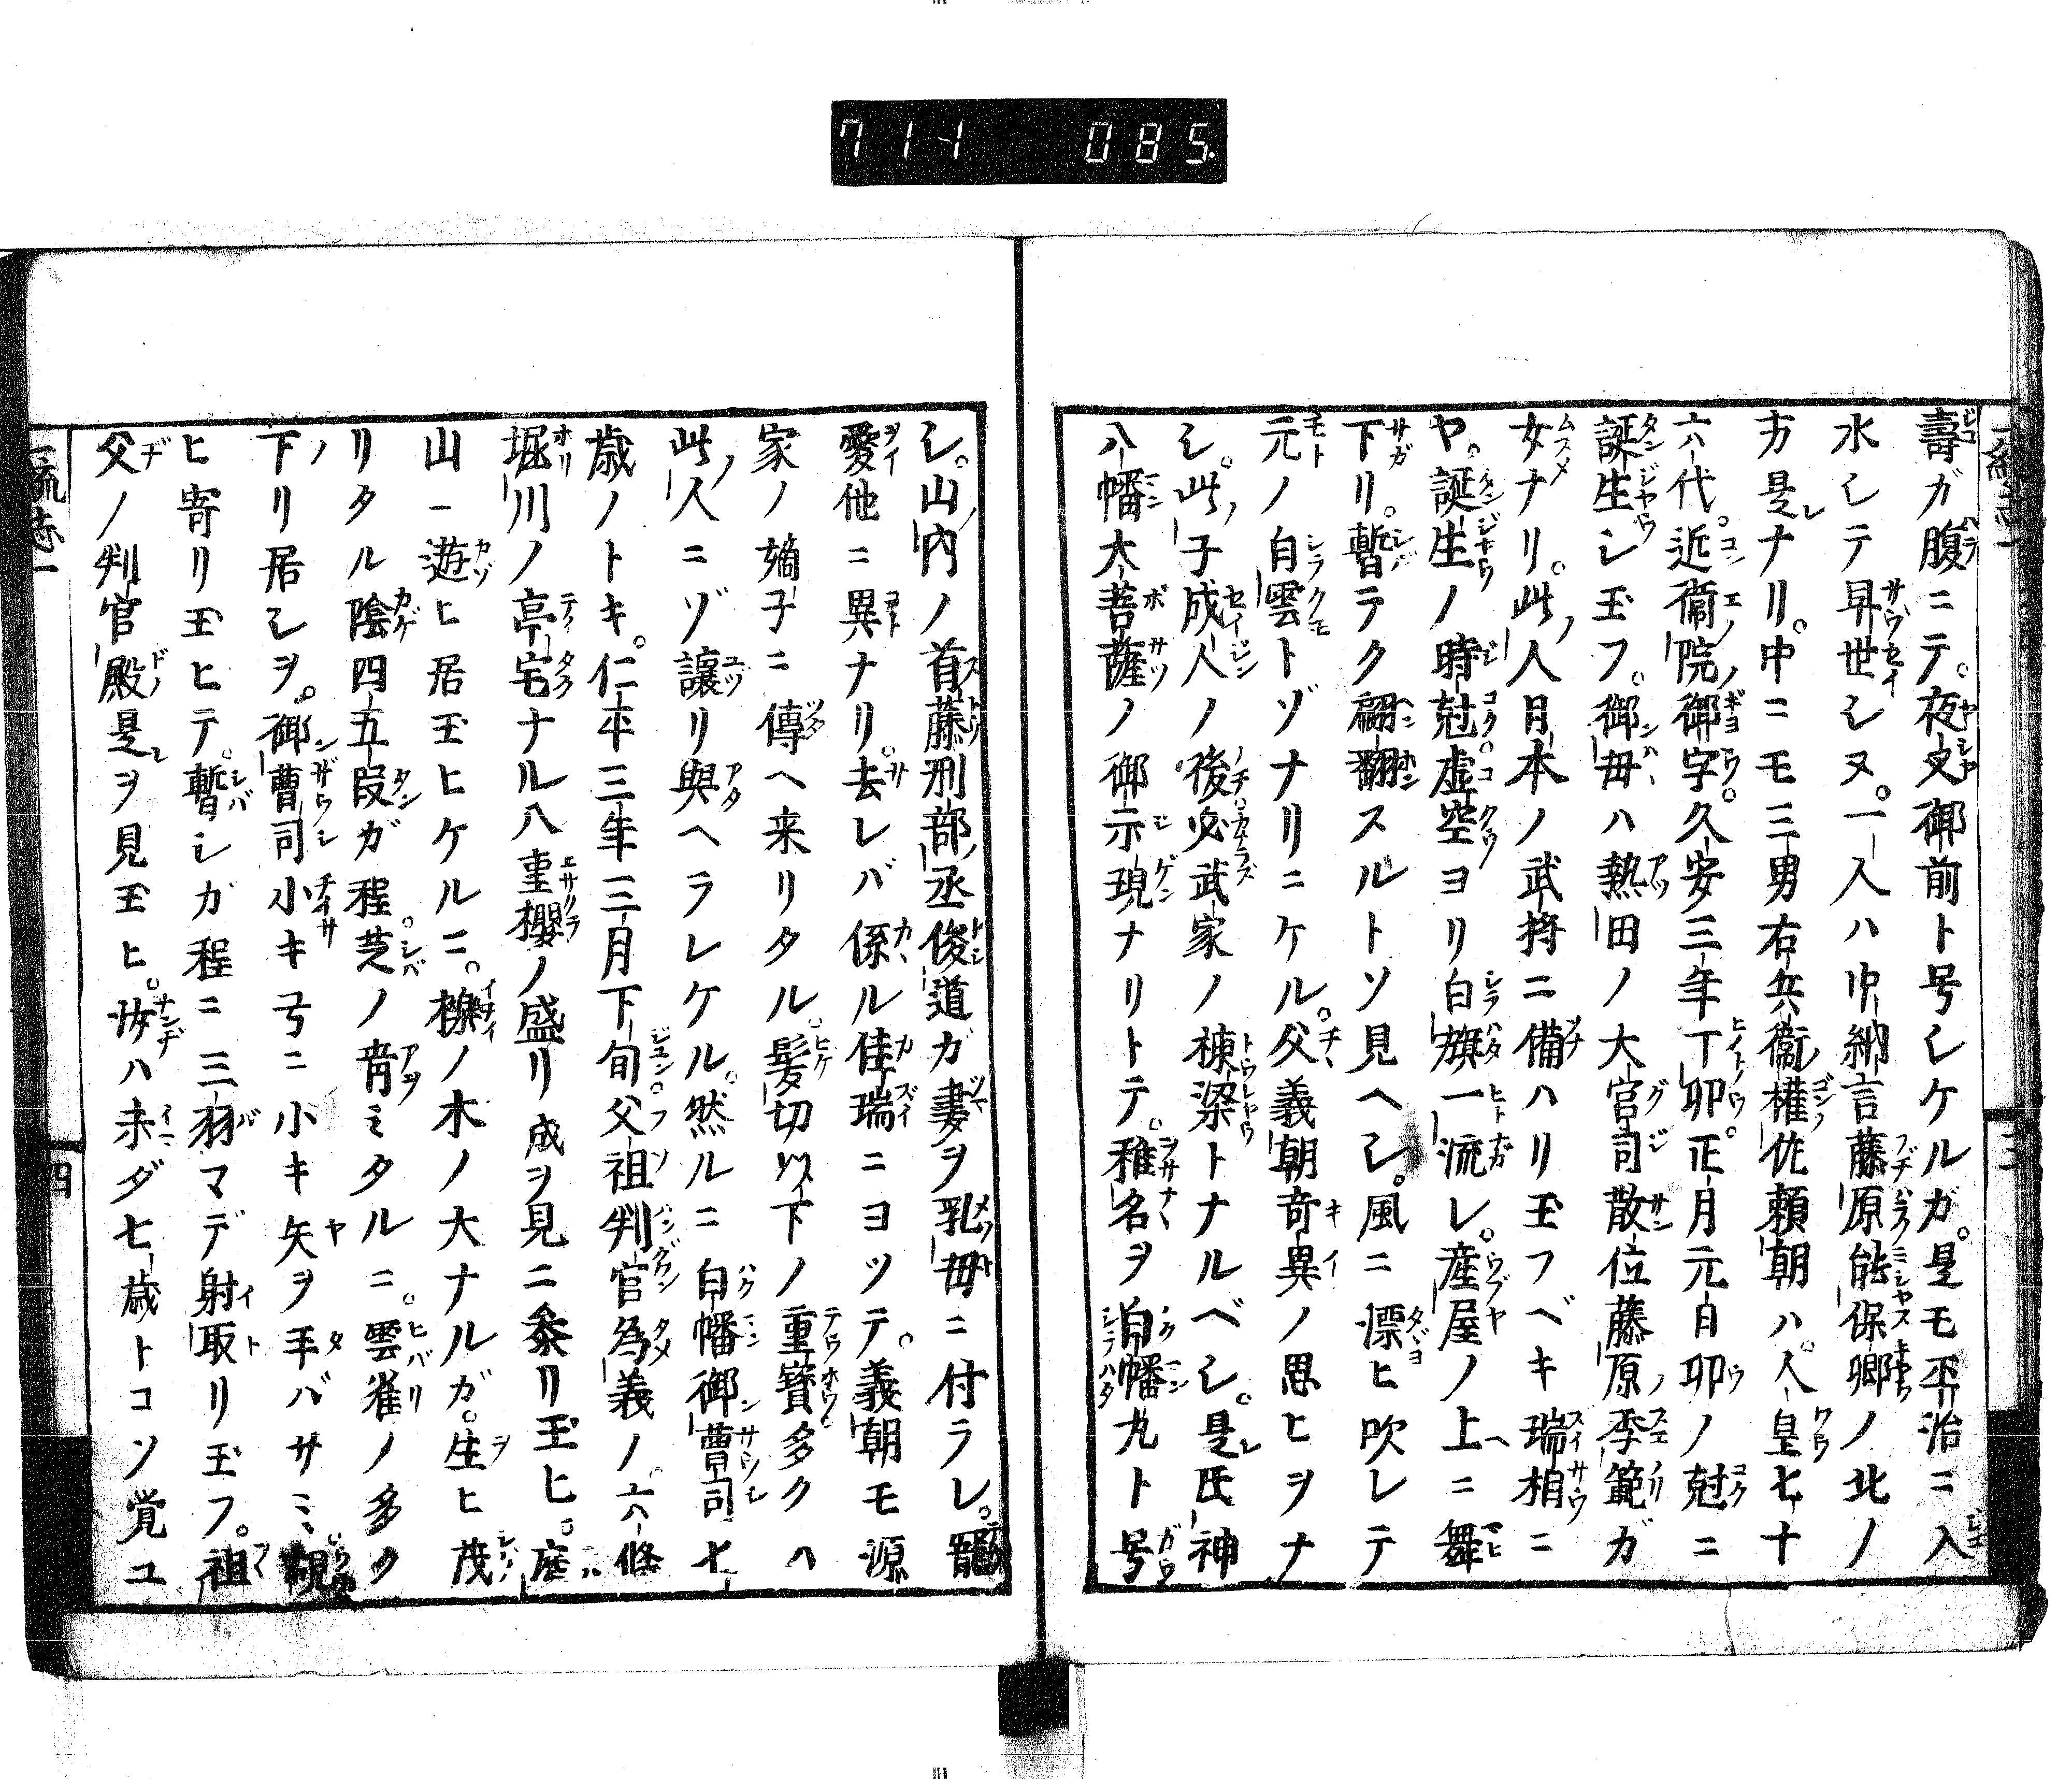 711 085
壽ガ腹ニテ。夜叉御前ト号シケルガ。是モ平治ニ入
水シテ早世シヌ。一人ハ中納言藤原能保卿ノ北ノ
方是ナリ。中ニモ三男右兵衞權佐頼朝ハ。人皇七十
六代。近衞院御宇。久安三年丁卯。正月元日卯ノ尅ニ
誕生シ玉フ。御母ハ熱田ノ大宮司散位藤原季範ガ
女ナリ。此人日本ノ武將ニ備ハリ玉フベキ瑞相ニ
ヤ。誕生ノ時尅。虚空ヨリ白旗一流レ。産屋ノ上ニ舞
下リ。暫テク翩翻スルトソ見ヘシ。風ニ漂ヒ吹レテ
元ノ白雲トゾナリニケル。父義朝奇異ノ思ヒヲナ
シ。此子成人ノ後。必武家ノ棟梁トナルベシ。是氏神
八幡大菩薩ノ御示現ナリトテ。稚名ヲ白幡丸ト号
シ。山内ノ首藤刑部丞俊道ガ妻ヲ乳母ニ付ラレ。寵
愛他ニ異ナリ。去レバ係ル佳瑞ニヨツテ。義朝モ源
家ノ嫡子ニ傳ヘ来リタル。髪切以下ノ重寳多クハ
此人ニゾ讓リ與ヘラレケル。然ルニ白幡御曹司七
歳ノトキ。仁平三年三月下旬。父祖判官為義ノ。六條
堀川ノ亭宅ナル八重櫻ノ盛リ成ヲ見ニ參リ玉ヒ。庭
山ニ遊ヒ居玉ヒケルニ。櫟ノ木ノ大ナルガ。生ヒ茂
リタル陰四五段ガ程。芝ノ青ミタルニ。雲雀ノ多ク
下リ居シヲ。御曹司小キ弓ニ小キ矢ヲ手バサミ。覗
ヒ寄リ玉ヒテ。暫シガ程ニ三羽マデ射取リ玉フ。祖
父ノ判官殿是ヲ見玉ヒ。汝ハ未ダ七歳トコソ覚ユ
四